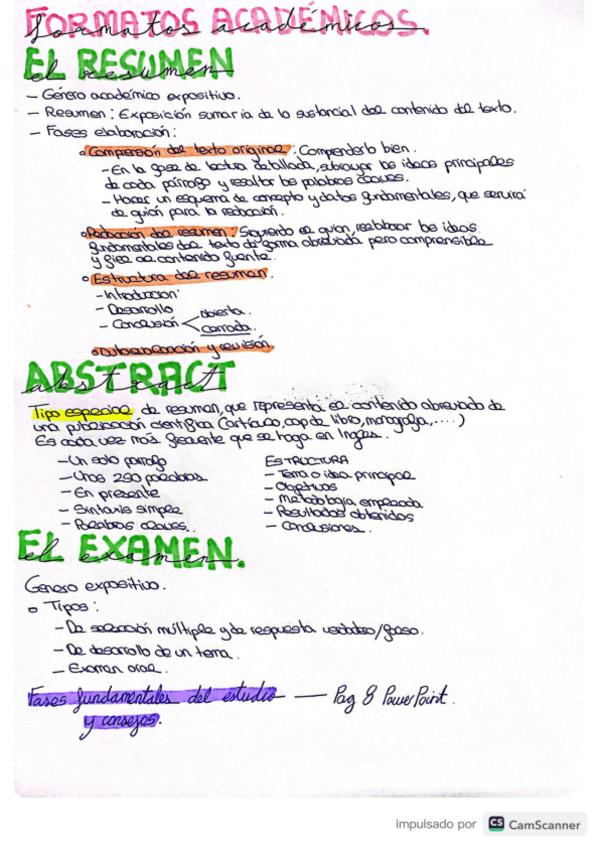 FORMATOS ACADÉMICOS.
formatos académicos.
EL RESUMEN
el resumen
- Género académico expositivo.
- Resumen: Exposición sumaria de lo sustancial del contenido del texto.
- Fases elaboración:
Compersión del texto original: Comprenderlo bien.
- En la fase de lectura detallada, subrayar las ideas principales
de cada párrafo y resaltar las palabras claves.
- Hacer un esquema de concepto y datos fundamentales, que servirá
de guión para la redacción.
Redacción del resumen: Siguiendo el guion, reelaborar las ideas
fundamentales del texto de forma abreviada pero comprensible
y fiel al contenido fuente.
Estructura del resumen.
- Introducción
- Desarrollo
- Conclusión
abierta.
cerrada.
y revisión.
ABSTRACT
abstract
Tipo especial de resumen, que representa el contenido abreviado de
una publicación científica (artículo, cap de libro, monografía,....)
Es cada vez más frecuente que se haga en Ingles.
- Un solo párrafo
- Unas 250 palabras
- En presente
- Sintaxis simple
- Palabras claves.
ESTRUCTURA
- Tema o idea principal
- Objetivos
- Metodología empleada
- Resultados obtenidos
- Conclusiones.
EL EXAMEN.
el examen.
Genero expositivo.
Tipos:
- De selección múltiple y de respuesta verdadero/falso.
- De desarrollo de un tema.
- Examen oral.
Fases fundamentales del estudio — Pag 8 PowerPoint.
y consejos.
impulsado por CS CamScanner